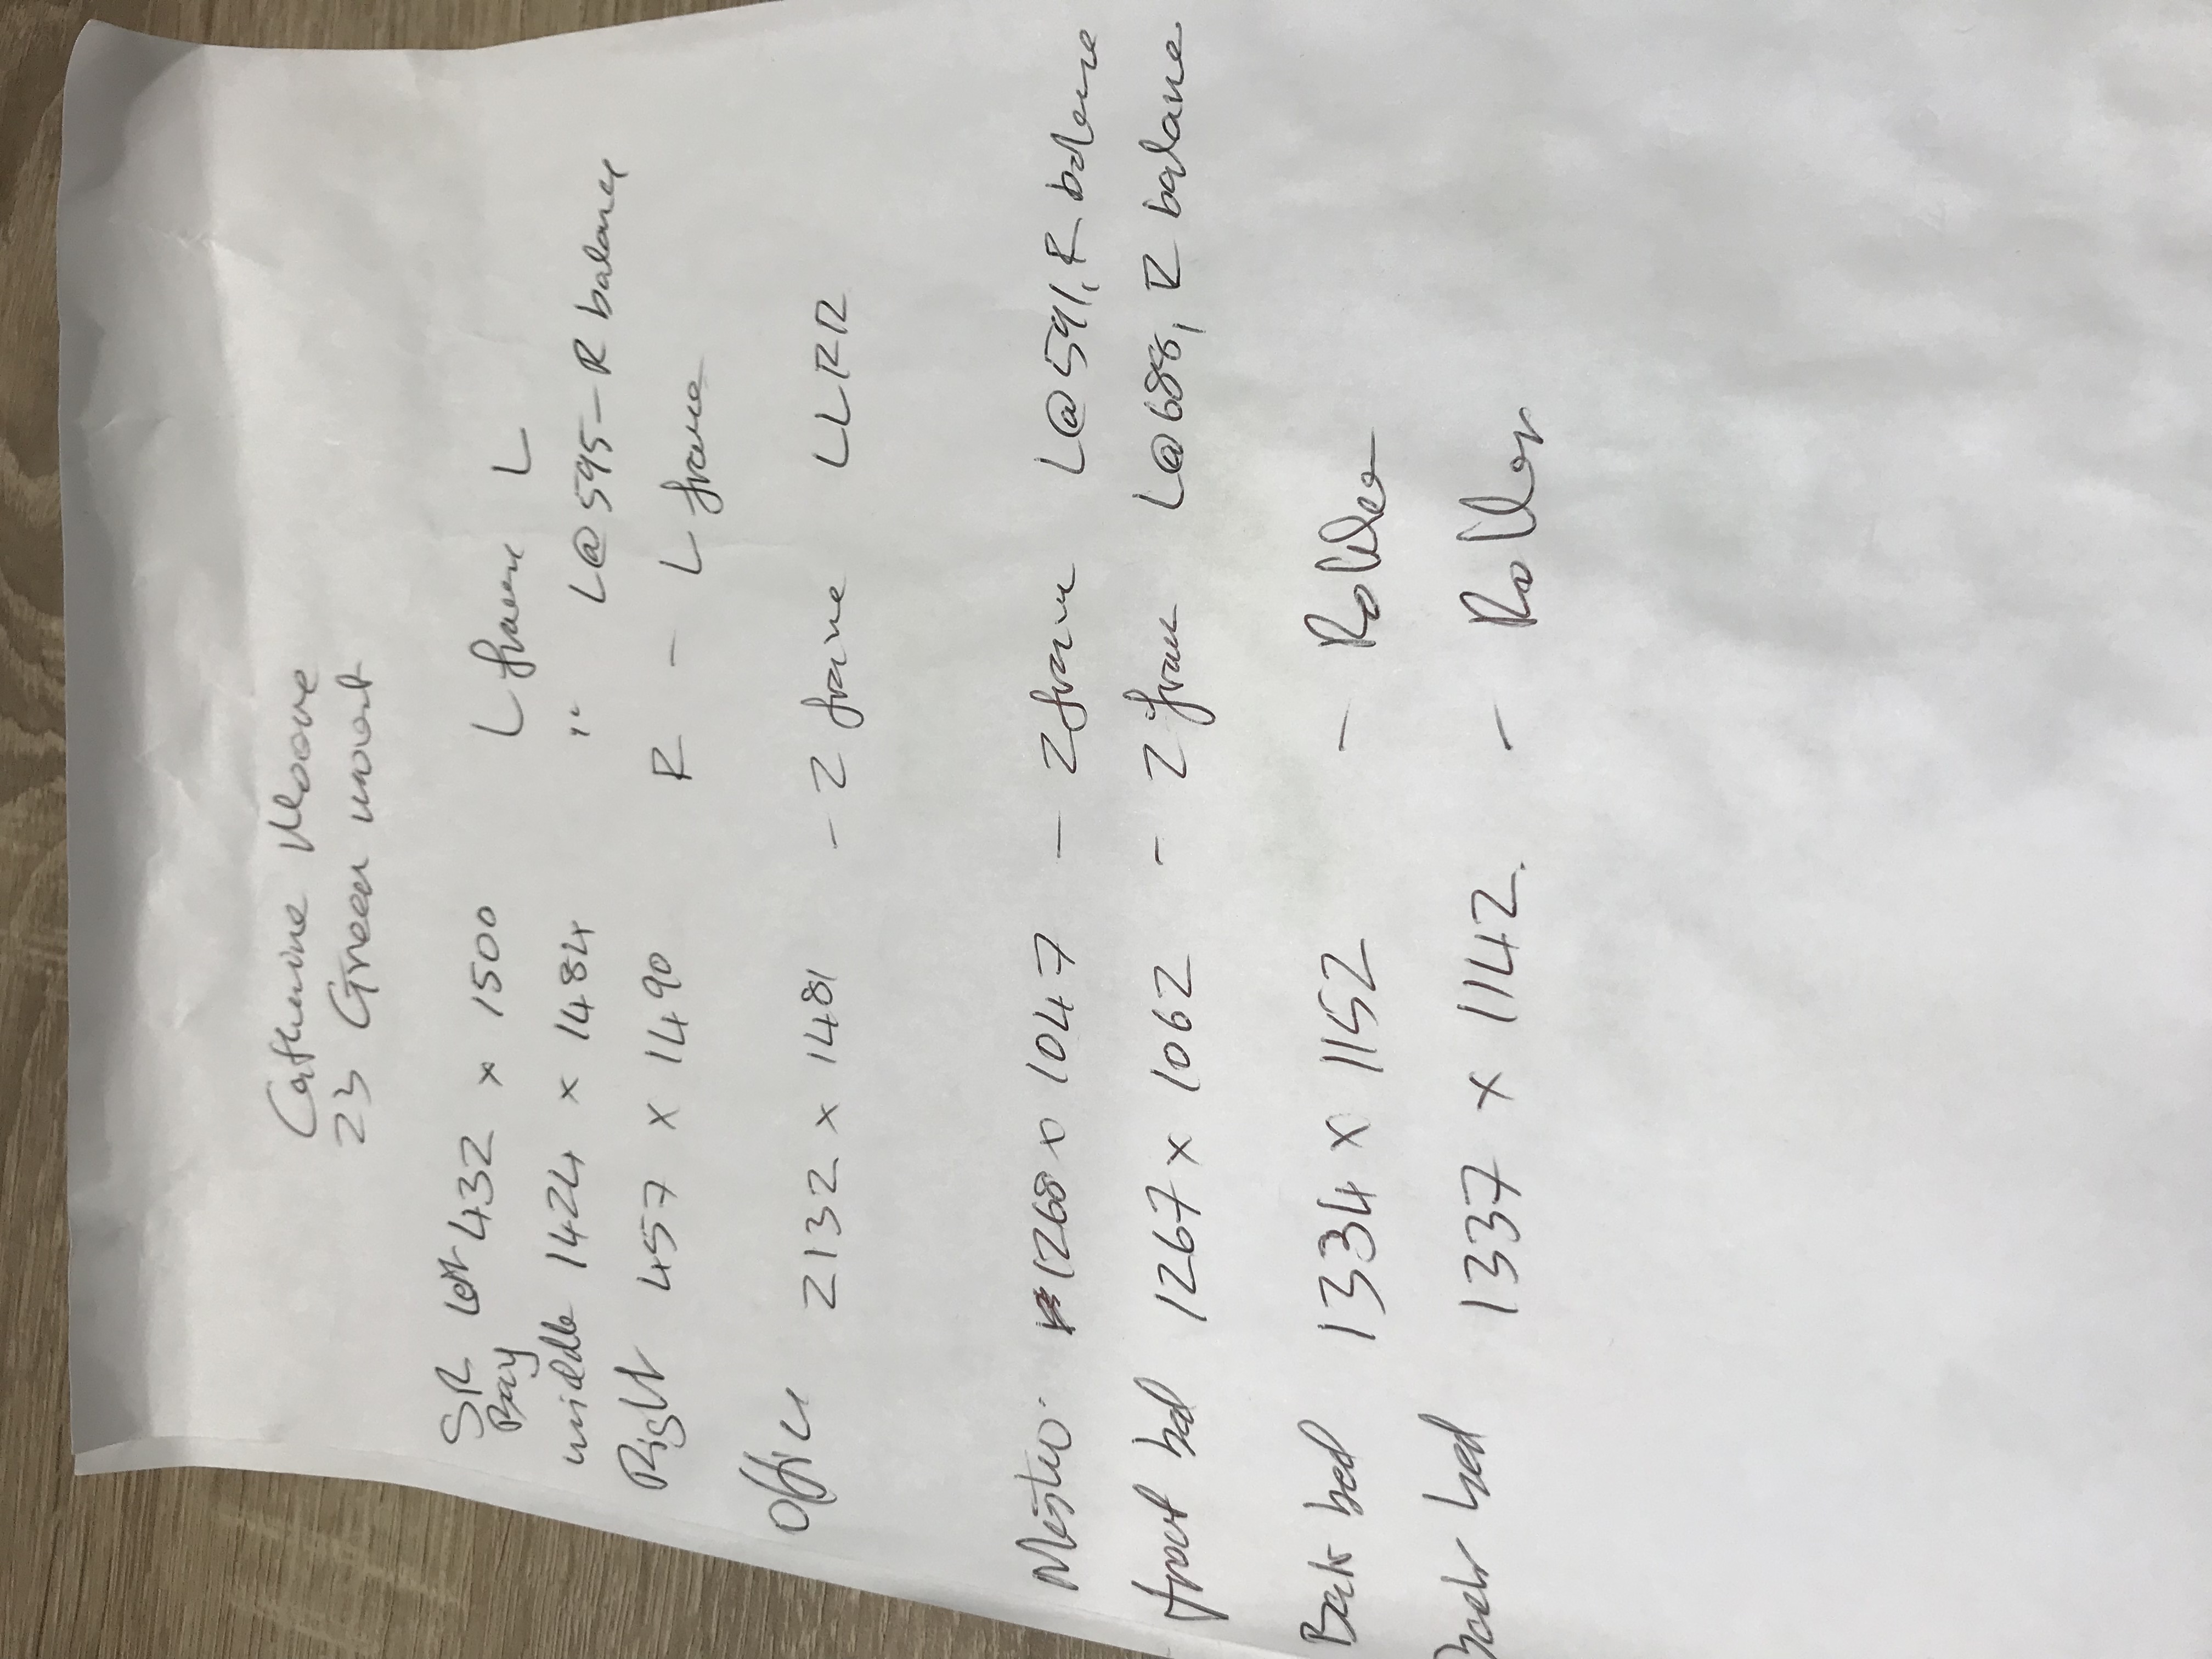 Catherine Moore
23 Green moat
SR Left 432 x 1500 L frame L
Bay
middle 1424 x 1484 " L@595-R balance
Right 457 x 1490 R - L frame
Office 2132 x 1481 - Z frame LLRR
Master 1268 x 1047 - Z frame L@591, R balance
front bed 1267 x 1062 - Z frame L@688, R balance
Back bed 1334 x 1152 - Roller
back bed 1337 x 1142. - Roller